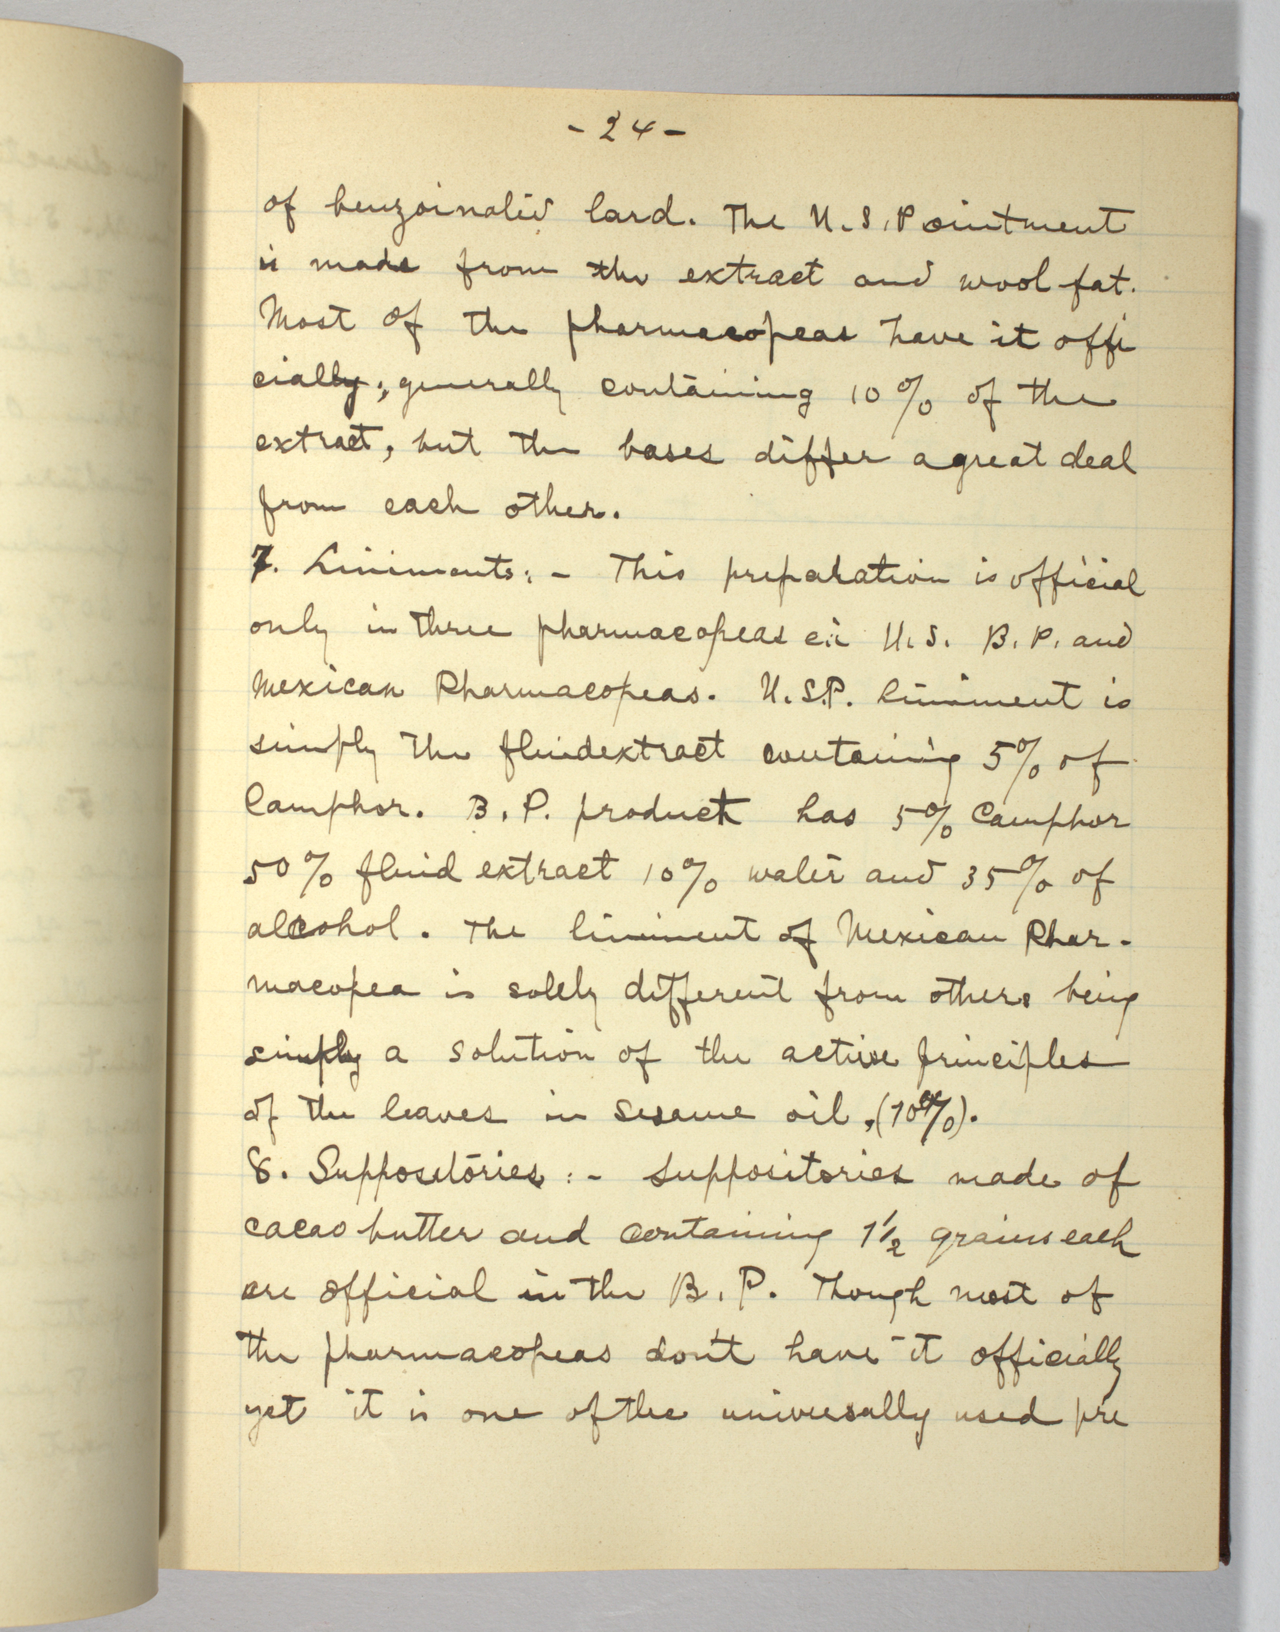 - 24 -
of benzoinated lard. The U.S.P ointment
is made from the extract and wool fat.
Most of the pharmacopeas have it offi
cially; generally containing 10% of the
extract, but the bases differ a great deal
from each other.
7. Liniments: - This preparation is official
only in three pharmacopeas U.S. B.P. and
Mexican Pharmacopeas. U.S.P. liniment is
simply the fluidextract containing 5% of
Camphor. B.P. product has 5% Camphor
50% fluid extract 10% water and 35% of
alcohol. The liniment of Mexican Phar-
macopea is solely different from others being
simply a solution of the active principles
of the leaves in sesame oil, (10%).
8. Suppositories: - Suppositories made of
cacao butter and containing 1 1/2 grains each
are official in the B.P. Though most of
the pharmacopeas don't have it officially
yet it is one of the universally used pre